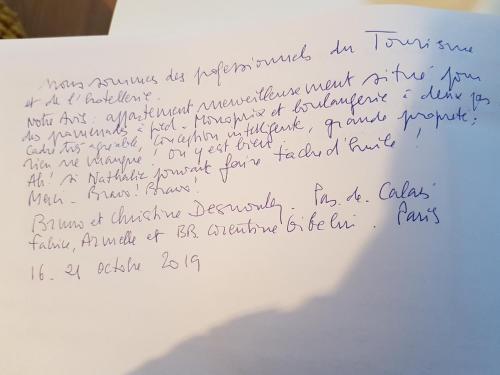 Nous sommes des professionnels du Tourisme
et de l'hotellerie.
Notre Avis : appartement merveilleusement situé pour
des promenades à pied - Monoprix et boulangerie à deux pas
Cadre très agréable, Conception intelligente, grande propreté :
rien ne manque ! On y est bien.
Ah ! si Nathalie pouvait faire tache d'huile !
Merci - Bravo ! Bravo.
Bruno et Christine . Pas. de. Calais
Fabrice, Armelle et BB Corentine . Paris
16. 21 octobre 2019